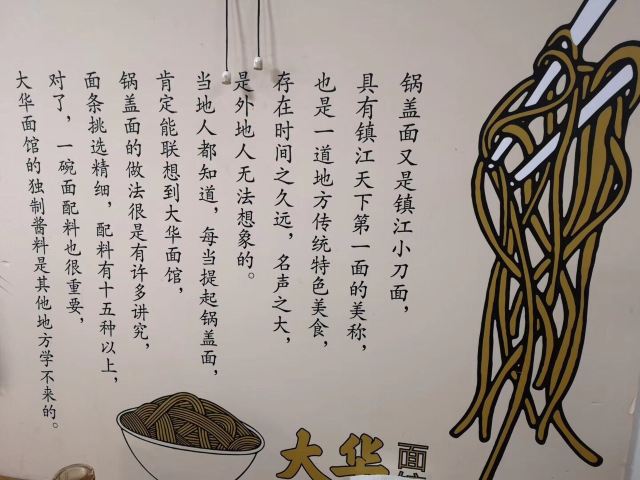 锅盖面又是镇江小刀面，
具有镇江天下第一面的美称，
也是一道地方传统特色美食，
存在时间之久远，名声之大，
是外地人无法想象的。
当地人都知道，每当提起锅盖面，
肯定能联想到大华面馆，
锅盖面的做法很是有许多讲究，
面条挑选精细，配料有十五种以上，
对了，一碗面配料也很重要，
大华面馆的独制酱料是其他地方学不来的。
大华
面馆